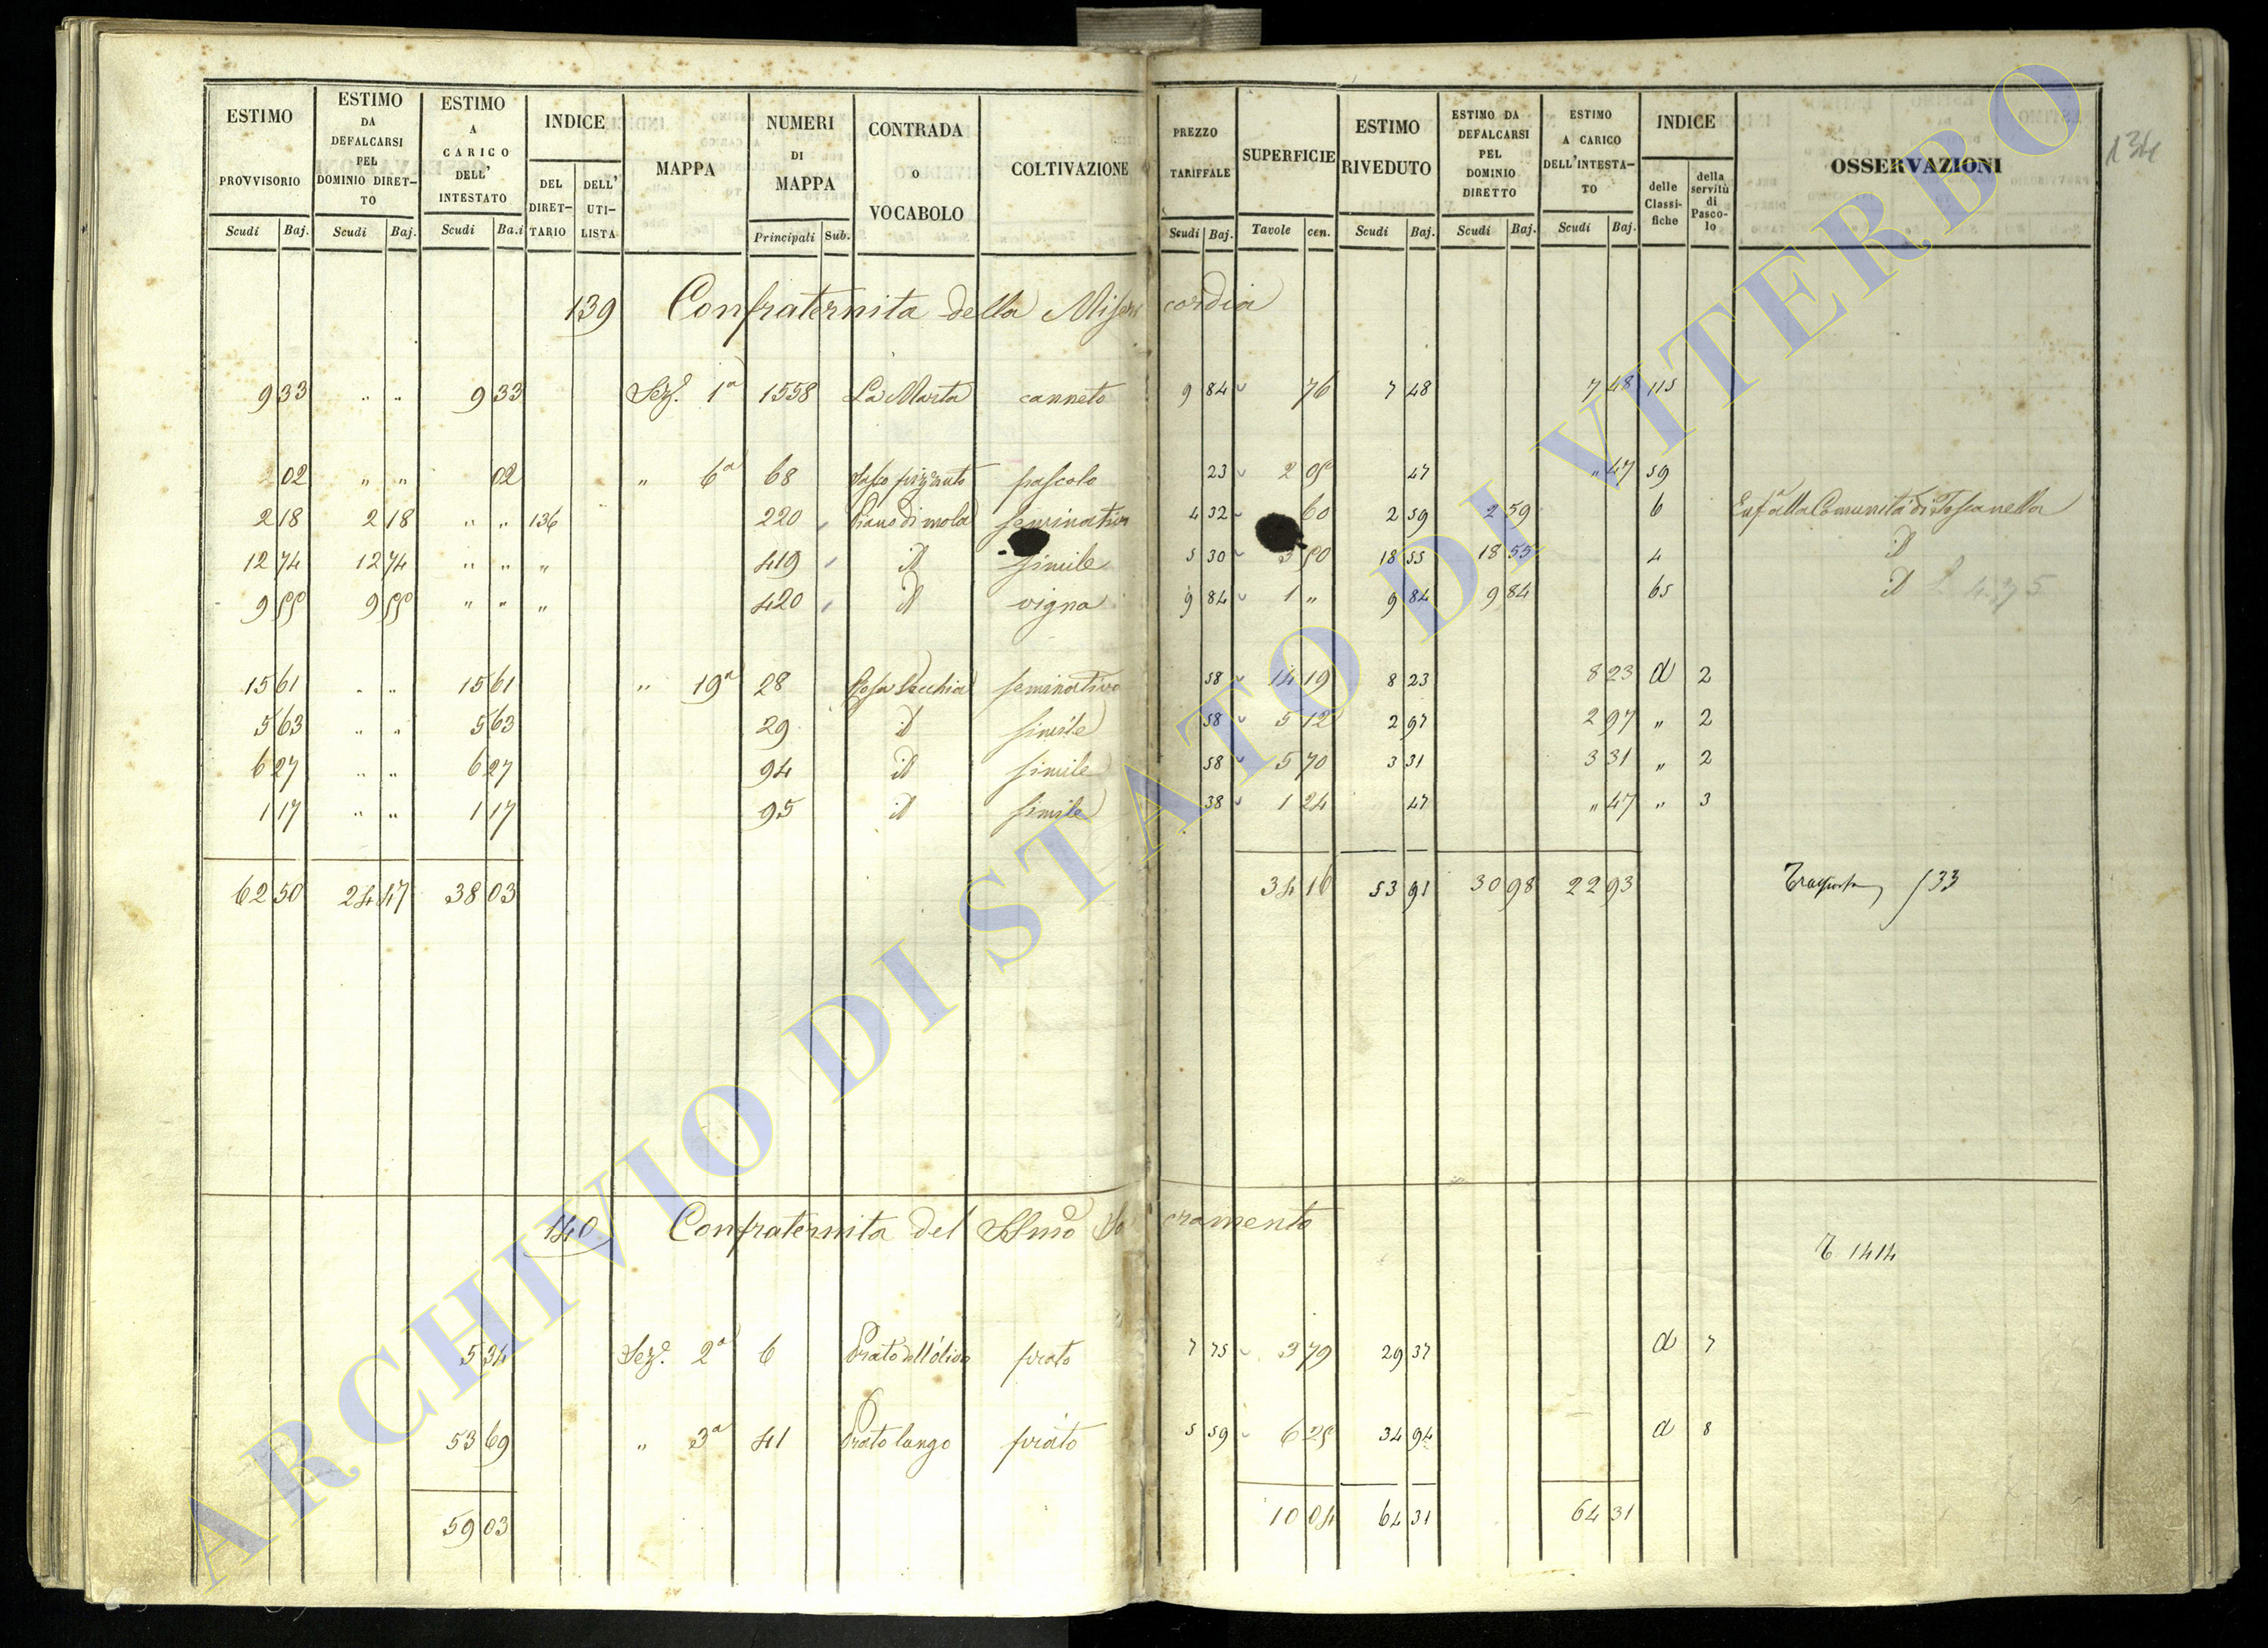 134
ESTIMO PROVVISORIO Scudi Baj.
ESTIMO DA DEFALCARSI PEL DOMINIO DIRET-TO Scudi Baj.
ESTIMO A CARICO DELL' INTESTATO Scudi Ba.i
INDICE DEL DIRET-TARIO DELL' UTI-LISTA
MAPPA
NUMERI DI MAPPA Principali Sub.
CONTRADA O VOCABOLO
COLTIVAZIONE
PREZZO TARIFFALE Scudi Baj.
SUPERFICIE Tavole cen.
ESTIMO RIVEDUTO Scudi Baj.
ESTIMO DA DEFALCARSI PEL DOMINIO DIRETTO Scudi Baj.
ESTIMO A CARICO DELL'INTESTA-TO Scudi Baj.
INDICE delle Classi-fiche della servitù di Pasco-lo
OSSERVAZIONI
139 Confraternita della Misericordia
9 33 " " 9 33 Sez.e 1a 1558 La Marta canneto 9 84 76 7 48 7 48 115
02 " " 02 " 6a 68 Sasso pizzuto pascolo 23 2 05 47 " 47 59
2 18 2 18 " " 136 220 Piano di mola seminativo 4 32 60 2 59 2 59 6 Enf.a alla Comunità di Toscanella
12 74 12 74 " " " 419 id simile 5 30 3 50 18 55 18 55 4 id
9 55 9 55 " " " 420 id vigna 9 84 1 " 9 84 9 84 65 id
15 61 " " 15 61 " 19a 28 Rosa Vecchia seminativo 58 14 19 8 23 8 23 d 2
5 63 " " 5 63 29 id simile 58 5 12 2 97 2 97 " 2
6 27 " " 6 27 94 id simile 58 5 70 3 31 3 31 " 2
1 17 " " 1 17 95 id simile 38 1 24 47 " 47 " 3
62 50 24 47 38 03 34 16 53 91 30 98 22 93 Trasporto 533
140 Confraternita del SSmo Sacramento
T. 1414
5 34 Sez.e 2a 6 Prato dell'olivo prato 7 75 3 79 29 37 d 7
53 69 " 3a 41 Prato lungo prato 5 59 6 25 34 94 d 8
59 03 10 04 64 31 64 31
ARCHIVIO DI STATO DI VITERBO